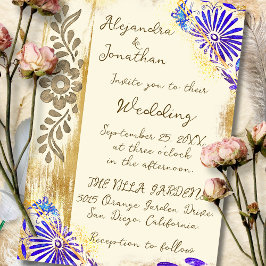 Alejandra
&
Jonathan
Invite you to their
Wedding
September 25, 20XX
at three o'clock
in the afternoon.
THE VILLA GARDEN
5025 Orange Garden Drive,
San Diego, California
Reception to follow